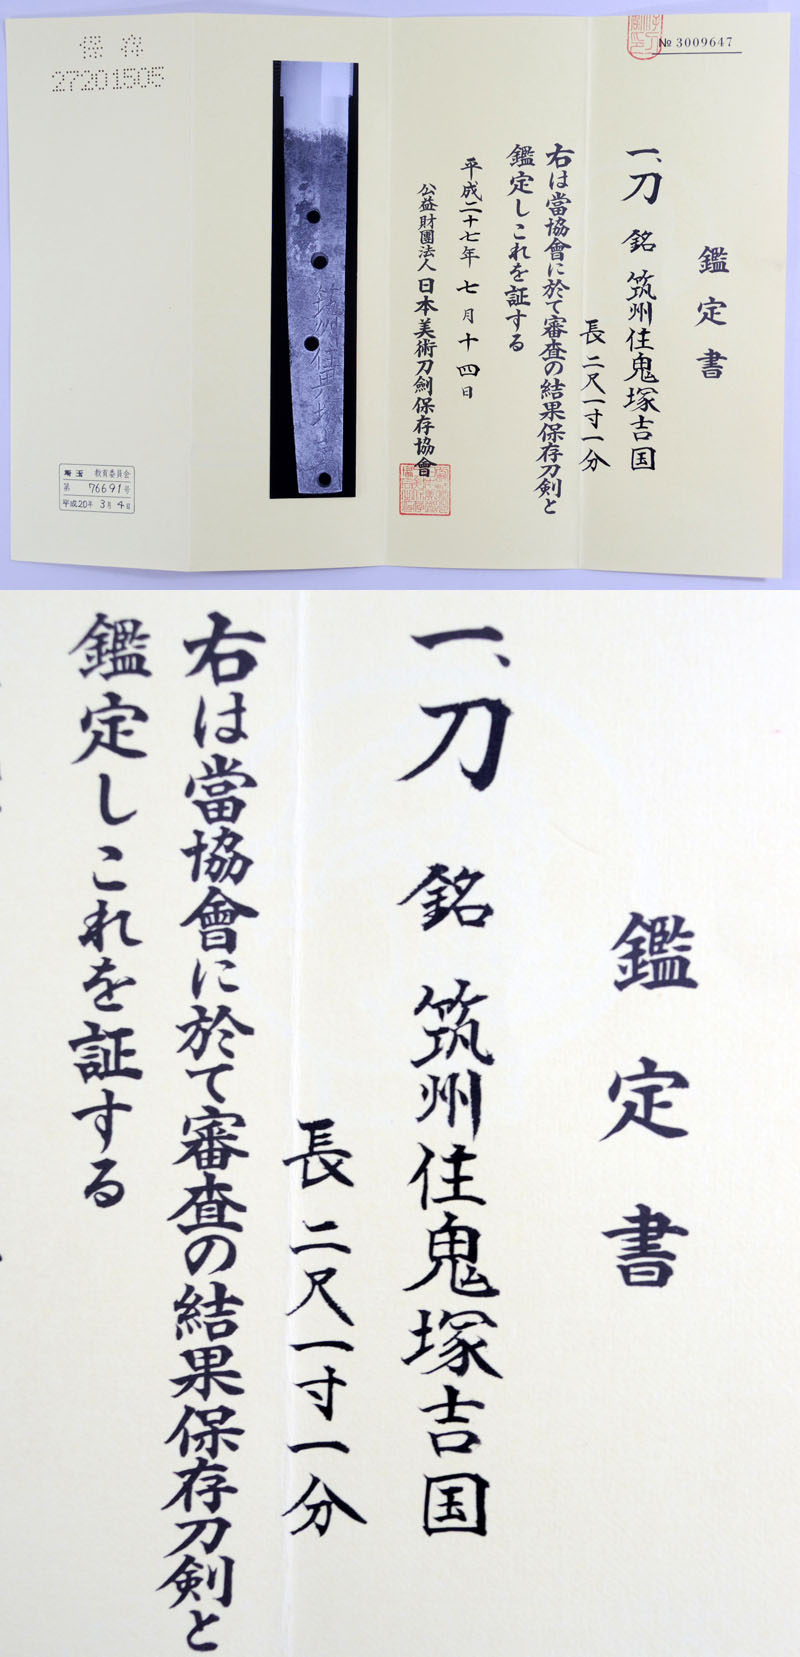 № 3009647
鑑定書
一、刀 銘 筑州住鬼塚吉国
長 二尺一寸一分
右は當協會に於て審査の結果保存刀剣と
鑑定しこれを証する
平成二十七年 七月十四日
公益財團法人 日本美術刀劍保存協會
保存
27201505
埼玉 教育委員会
第 76691号
平成20年 3月 4日
鑑定書
一、刀 銘 筑州住鬼塚吉国
長 二尺一寸一分
右は當協會に於て審査の結果保存刀剣と
鑑定しこれを証する